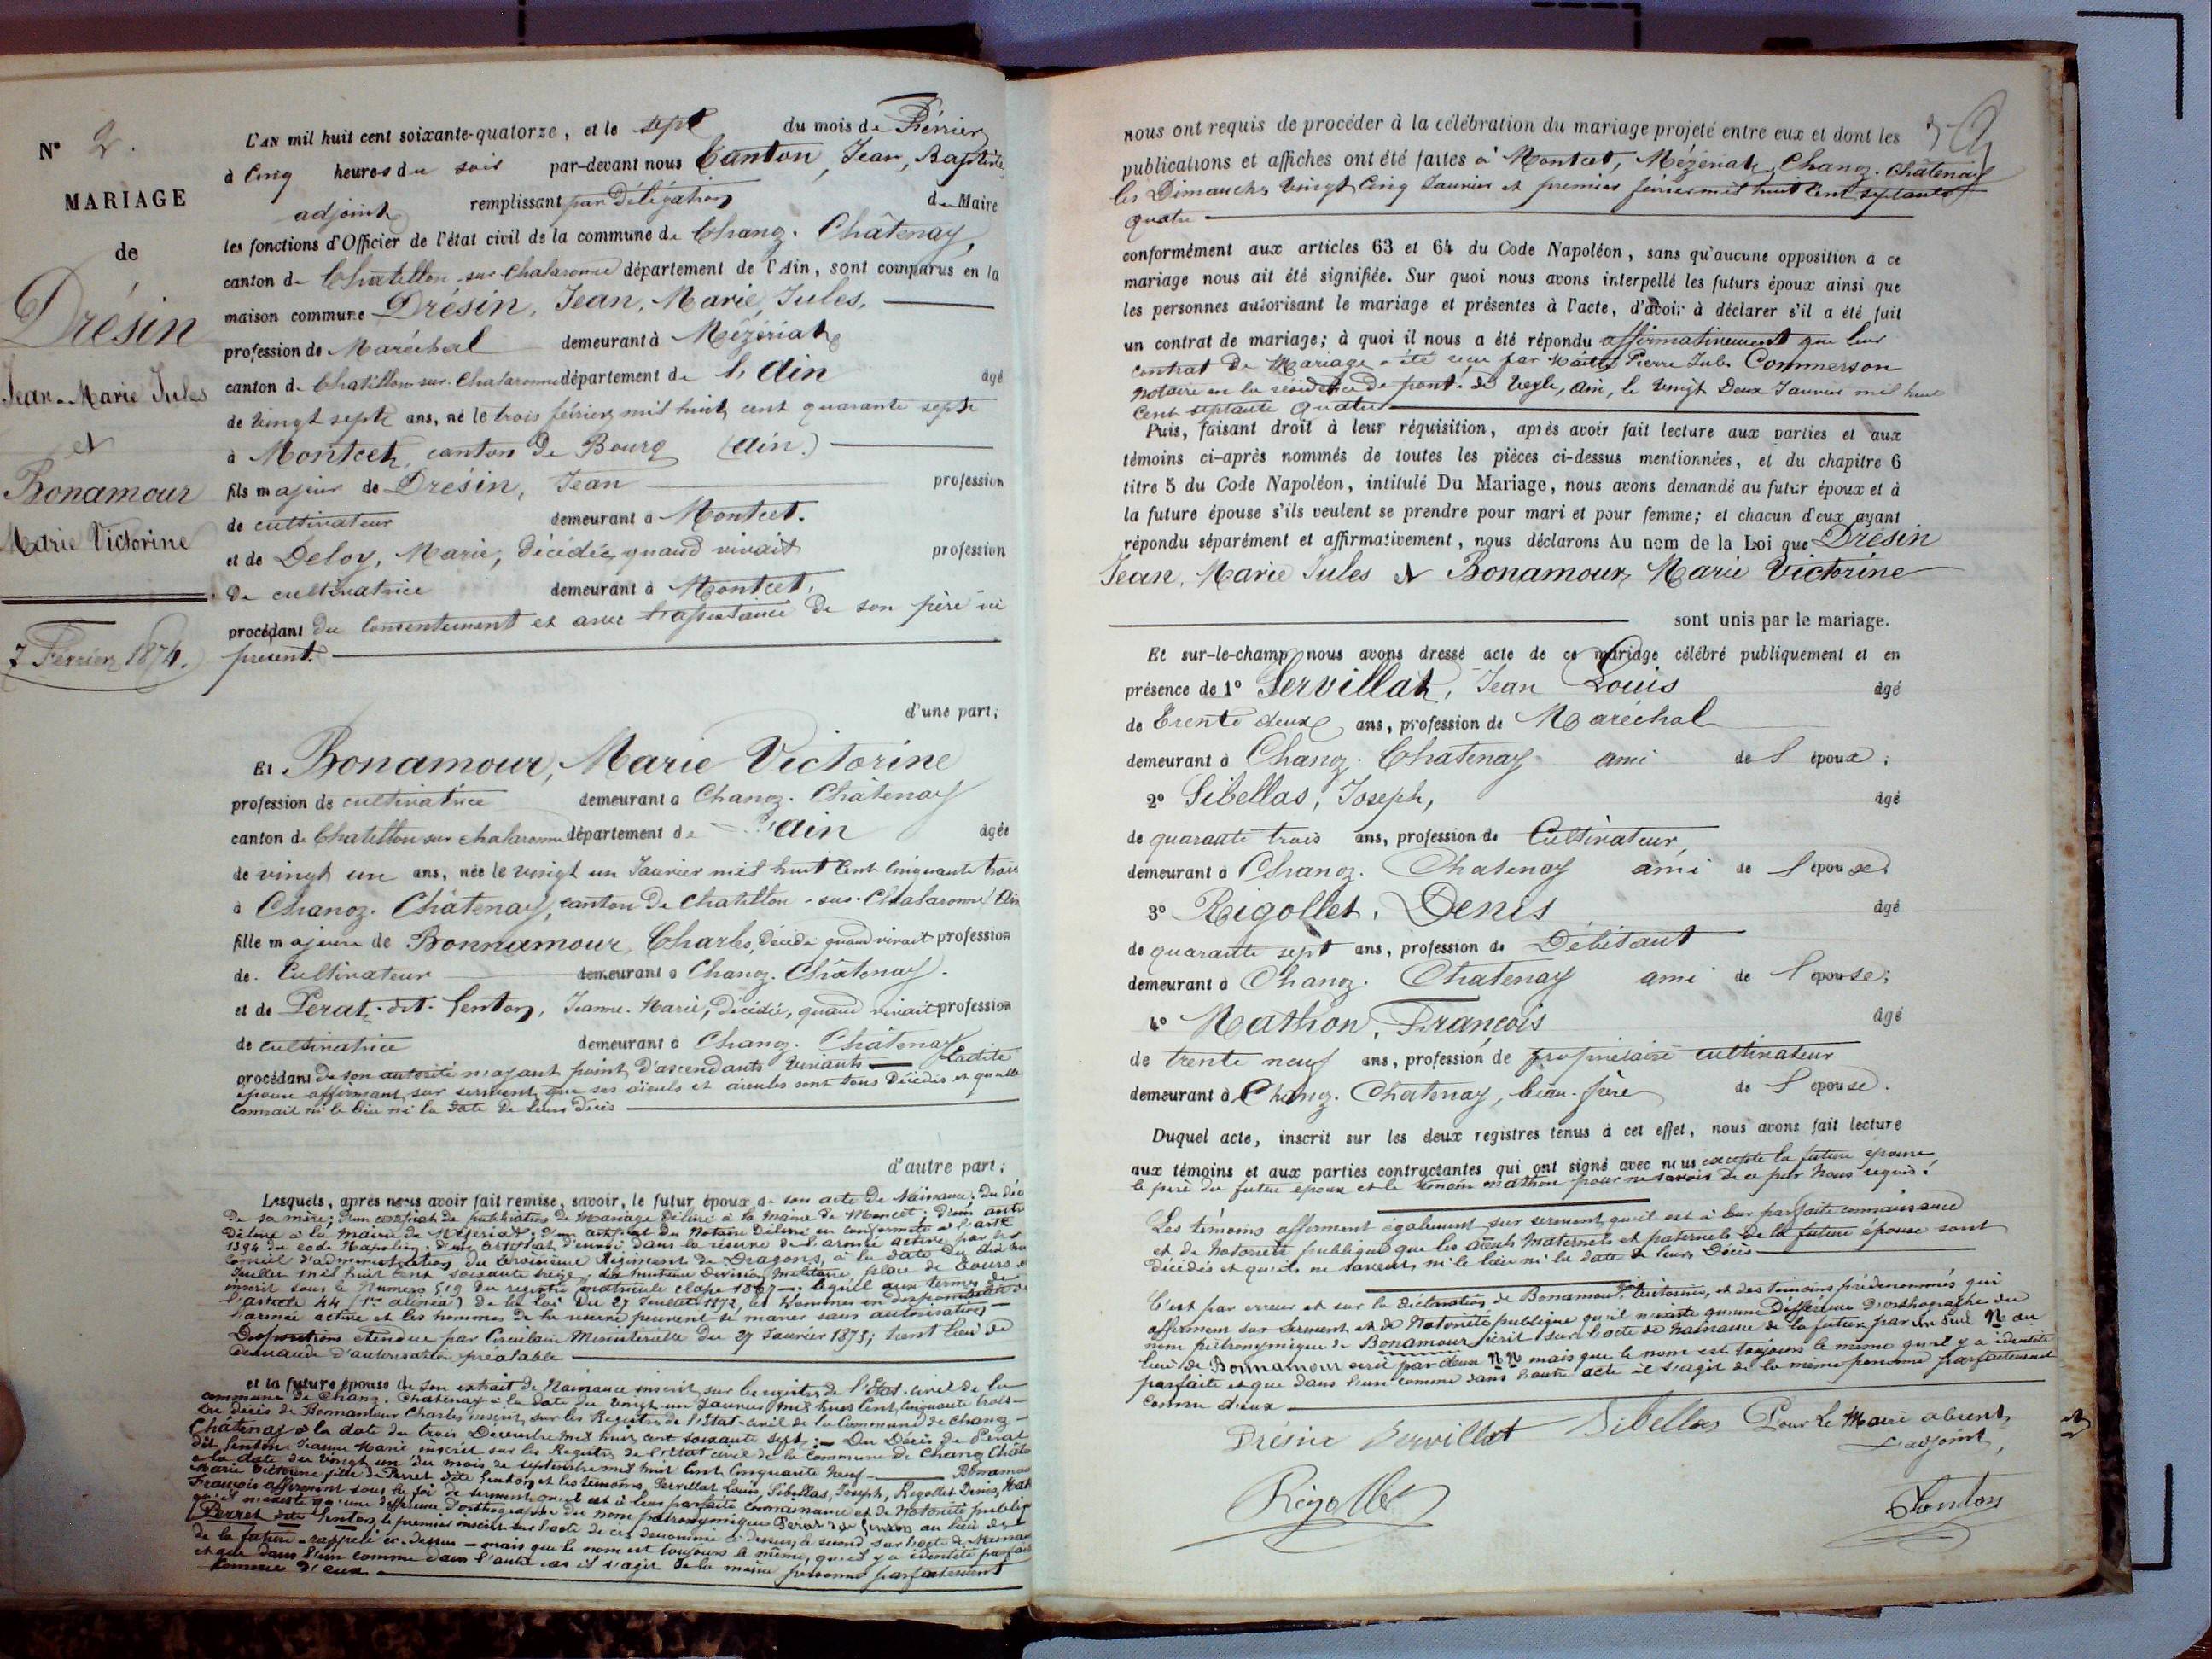 N° 2.
MARIAGE
de
Drésin
Jean-Marie Jules
et
Bonamour
Marie Victorine
7 Février 1874.
L'AN mil huit cent soixante-quatorze, et le sept du mois de Février
à Cinq heures du soir par-devant nous Canton, Jean, Baptiste
adjoint remplissant par Délégation du Maire
les fonctions d'Officier de l'état civil de la commune de Chanoz. Châtenay,
canton de Chatillon sur Chalaronne département de l'Ain, sont comparus en la
maison commune Drésin, Jean, Marie, Jules,
profession de Maréchal demeurant à Mézériat
canton de Chatillon-sur-Chalaronne département de l'Ain âgé
de vingt sept ans, né le trois février mil huit cent quarante sept
à Montcet, canton de Bourg (Ain.)
fils majeur de Drésin, Jean profession
de cultivateur demeurant à Montcet.
et de Deloy, Marie, décédée, quand vivait profession
De cultivatrice demeurant à Montcet,
procédant du Consentement et avec l'assistance de son père ici
présent.
d'une part;
Et Bonamour, Marie Victorine
profession de cultivatrice demeurant à Chanoz. Châtenay
canton de Chatillon sur Chalaronne département de l'Ain âgée
de vingt un ans, née le vingt un Janvier mil huit Cent Cinquante trois
à Chanoz. Châtenay, canton de Chatillon-sur-Chalaronne Ain
fille majeure de Bonnamour, Charles, décédé quand vivait profession
de Cultivateur demeurant à Chanoz. Châtenay.
et de Perat-dit-Genton, Jeanne-Marie, décédée, quand vivait profession
de cultivatrice demeurant à Chanoz. Châtenay
procédant de son autorité n'ayant point d'ascendants vivants Ladite
épouse affirmant sur serment que ses aïeuls et aïeules sont tous Décédés et qu'elle
Connait ni le lieu ni la date de leurs Décès
d'autre part;
Lesquels, après nous avoir fait remise, savoir, le futur époux de son acte de Naissance; du déc
De sa mère; d'un certificat de publication de Mariage Délivré à la Mairie de Moncet; d'un autre
Délivré à la Mairie de Mézériat; d'un certificat du Notaire Délivré en conformité à l'arte
1394 du code Napoléon; d'un certificat d'envoi dans la réserve de l'armée active par les
Conseil d'administration du Régiment de Dragons, à la date du dix
Juillet mil huit Cent soixante treize, Division Militaire, place de
inscrit sous le Numéro 519 du registre matricule classe 1867
l'article 44 (1er alinéa) de la loi du 27 Juillet 1872, les hommes en disponibilité de
l'armée active et les hommes de la réserve peuvent se marier sans autorisation
Dispositions étendue par Circulaire Ministérielle du 27 Janvier 1873; tient lieu de
Demande d'autorisation préalable
et la future épouse de son extrait de Naissance inscrit sur les registres de l'Etat-civil de la
commune de Chanoz. Chatenay à la date du vingt un Janvier mil huit Cent Cinquante trois
Du décès de Bonnamour Charles inscrit sur les Registres de l'Etat-civil de la Commune de Chanoz
Châtenay à la date du trois Décembre mil huit cent soixante sept; Du Décès de Perat
dit Genton Jeanne Marie inscrit sur les Registres de l'Etat civil de la Commune de Chanoz Châte
à la date du vingt un du mois de septembre mil huit Cent Cinquante Neuf Bonamour
Marie Victorine fille de Perret dite Genton et les témoins, Servillat Louis, Sibellas, Joseph, Rigollet Denis, Math
François affirment sous la foi de serment qu'il est à leur parfaite connaissance et de Notoriété publique
qu'il n'existe qu'une différence d'orthographe du nom patronymique Perat dit Genton au lieu de
Perret dite Genton, le premier inscrit sur l'acte de décès dénommé ci dessus, le second sur l'acte de Naissan
de la future rappelé ci-dessus mais que le nom est toujours le même, qu'il y a identité parfait
et que dans l'un comme dans l'autre cas il s'agit de la même personne parfaitement
Connue d'eux.
nous ont requis de procéder à la célébration du mariage projeté entre eux et dont les
publications et affiches ont été faites à Montcet, Mézériat, Chanoz. Châtenay
les Dimanches Vingt Cinq Janvier et premier février mil huit Cent septante
quatre
conformément aux articles 63 et 64 du Code Napoléon, sans qu'aucune opposition à ce
mariage nous ait été signifiée. Sur quoi nous avons interpellé les futurs époux ainsi que
les personnes autorisant le mariage et présentes à l'acte, d'avoir à déclarer s'il a été fait
un contrat de mariage; à quoi il nous a été répondu affirmativement que leur
contrat de Mariage a été reçu par Maître Pierre Jules Commerson
Notaire en la résidence de pont-de Veyle, Ain, le Vingt Deux Janvier mil huit
Cent septante Quatre
Puis, faisant droit à leur réquisition, après avoir fait lecture aux parties et aux
témoins ci-après nommés de toutes les pièces ci-dessus mentionnées, et du chapitre 6
titre 5 du Code Napoléon, intitulé Du Mariage, nous avons demandé au futur époux et à
la future épouse s'ils veulent se prendre pour mari et pour femme; et chacun d'eux ayant
répondu séparément et affirmativement, nous déclarons Au nom de la Loi que Drésin
Jean, Marie Jules et Bonamour, Marie Victorine
sont unis par le mariage.
Et sur-le-champ nous avons dressé acte de ce mariage célébré publiquement et en
présence de 1° Servillat, Jean Louis âgé
de Trente deux ans, profession de Maréchal
demeurant à Chanoz. Chatenay ami de l'époux;
2° Sibellas, Joseph, âgé
de quarante trois ans, profession de Cultivateur,
demeurant à Chanoz. Chatenay ami de l'épouse
3° Rigollet, Denis âgé
de quarante sept ans, profession de Débitant
demeurant à Chanoz. Chatenay ami de l'épouse;
4° Mathon, François âgé
de trente neuf ans, profession de propriétaire cultivateur
demeurant à Chanoz. Chatenay, beau-frère de l'épouse.
Duquel acte, inscrit sur les deux registres tenus à cet effet, nous avons fait lecture
aux témoins et aux parties contractantes qui ont signé avec nous excepté la future épouse,
le père du futur époux et le témoin Mathon pour ne savoir de ce par Nous requis.
Les témoins affirment également sur serment qu'il est à leur parfaite connaissance
et de Notoriété publique que les aïeuls maternels et paternels de la future épouse sont
décédés et qu'ils ne savent, ni le lieu ni la date de leurs Décès
C'est par erreur et sur la déclaration de Bonamour, Victorine, et des témoins prédénommés qui
affirment sur Serment et de Notoriété publique qu'il n'existe qu'une Différence d'orthographe du
nom patronymique de Bonamour écrit sur l'acte de naissance de la future par un seul N au
lieu de Bonnamour écrit par deux NN mais que le nom est toujours le même qu'il y a identité
parfaite et que dans l'un comme dans l'autre acte il s'agit de la même personne parfaitement
Connue d'eux
Drésin Servillat Sibellas Pour Le Maire absent,
L'adjoint,
Rigollet Canton